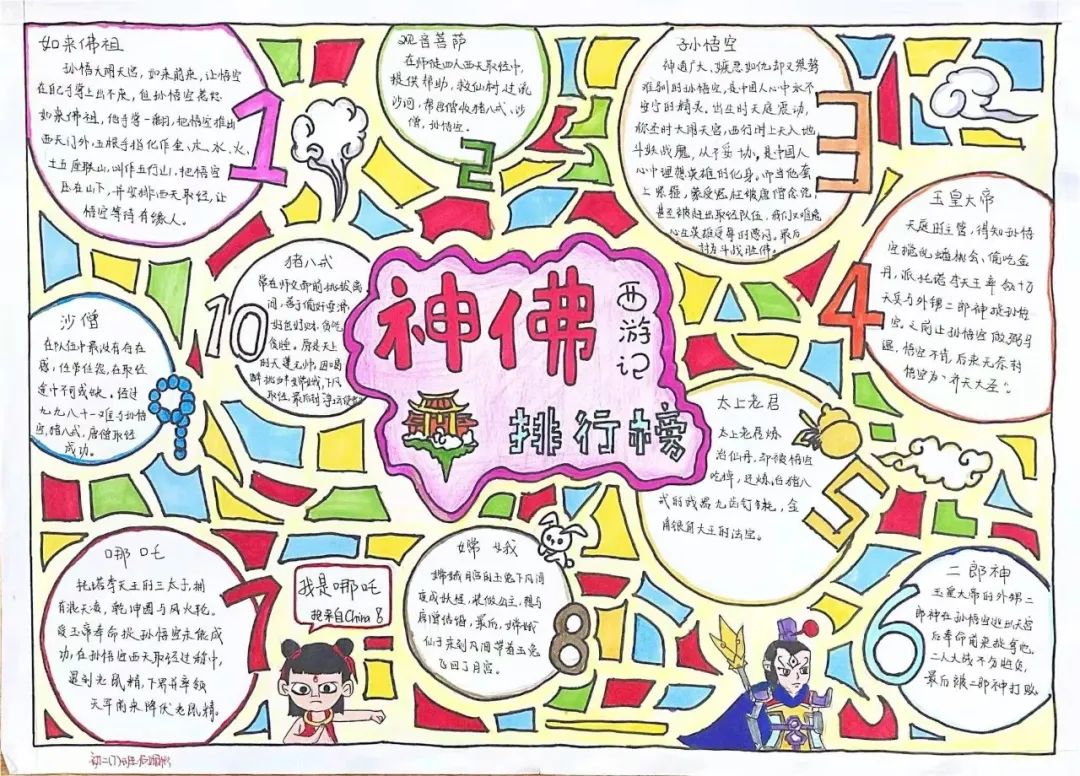 神佛
西游记
排行榜
1
如来佛祖
孙悟空大闹天宫，如来前来，让悟空
在自己手掌上出不去，但孙悟空惹怒
如来佛祖，他手掌一翻，把悟空推出
西天门外，五根手指化作金、木、水、火、
土五座联山，叫作五行山，把悟空
压在山下，并安排西天取经，让
悟空等待有缘人。
2
观音菩萨
在师徒四人西天取经中，
提供帮助，救仙树过流
沙河，帮唐僧收猪八戒、沙
僧、孙悟空。
3
孙悟空
神通广大、嫉恶如仇却又桀骜
难驯的孙悟空，是中国人心中永不
空守的精灵。出生时天庭震动，
称圣时大闹天宫，西行时上天入地
斗妖战魔，从不妥协，是中国人
心中理想英雄的化身。而当他套
上紧箍，蒙受冤枉被唐僧念咒，
甚至被赶出取经队伍，我们又难免
心生英雄受辱的愤闷。最后
封为斗战胜佛。
4
玉皇大帝
天庭的主管，得知孙悟
空搅乱蟠桃会，偷吃金
丹，派托塔李天王率领10万
天兵与外甥二郎神捉孙悟
空。之前让孙悟空做弼马
温，悟空不肯，后来无奈封
悟空为“齐天大圣”。
5
太上老君
太上老君炼
治仙丹，却被悟空
吃掉，还炼出猪八
戒的武器九齿钉耙，金
角银角大王的法宝。
6
二郎神
玉皇大帝的外甥二
郎神在孙悟空逃出天宫
后奉命前来捉拿他，
二人大战不分胜负，
最后被二郎神打败。
7
哪吒
托塔李天王的三太子，拥
有混天绫，乾坤圈与风火轮。
受玉帝奉命捉孙悟空未能成
功，在孙悟空西天取经过程中，
遇到老鼠精，下界并率领
天军前来降伏老鼠精。
我是哪吒
我来自China
8
嫦娥
嫦娥月宫的玉兔下凡间
变成妖怪，装做公主，想与
唐僧结婚，最后，嫦娥
仙子来到凡间带着玉兔
飞回了月宫。
沙僧
在队伍中最没有存在
感，任劳任怨，在取经
途中不可或缺。经过
九九八十一难与孙悟
空，猪八戒，唐僧取经
成功。
10
猪八戒
常在师父那前挑拨离
间，善于偷奸耍滑，
好色好财，贪吃
贪睡。原是天上
的天蓬元帅，因喝
醉挑戏嫦娥，下凡
取经，最后封净坛使者
初二(7)班